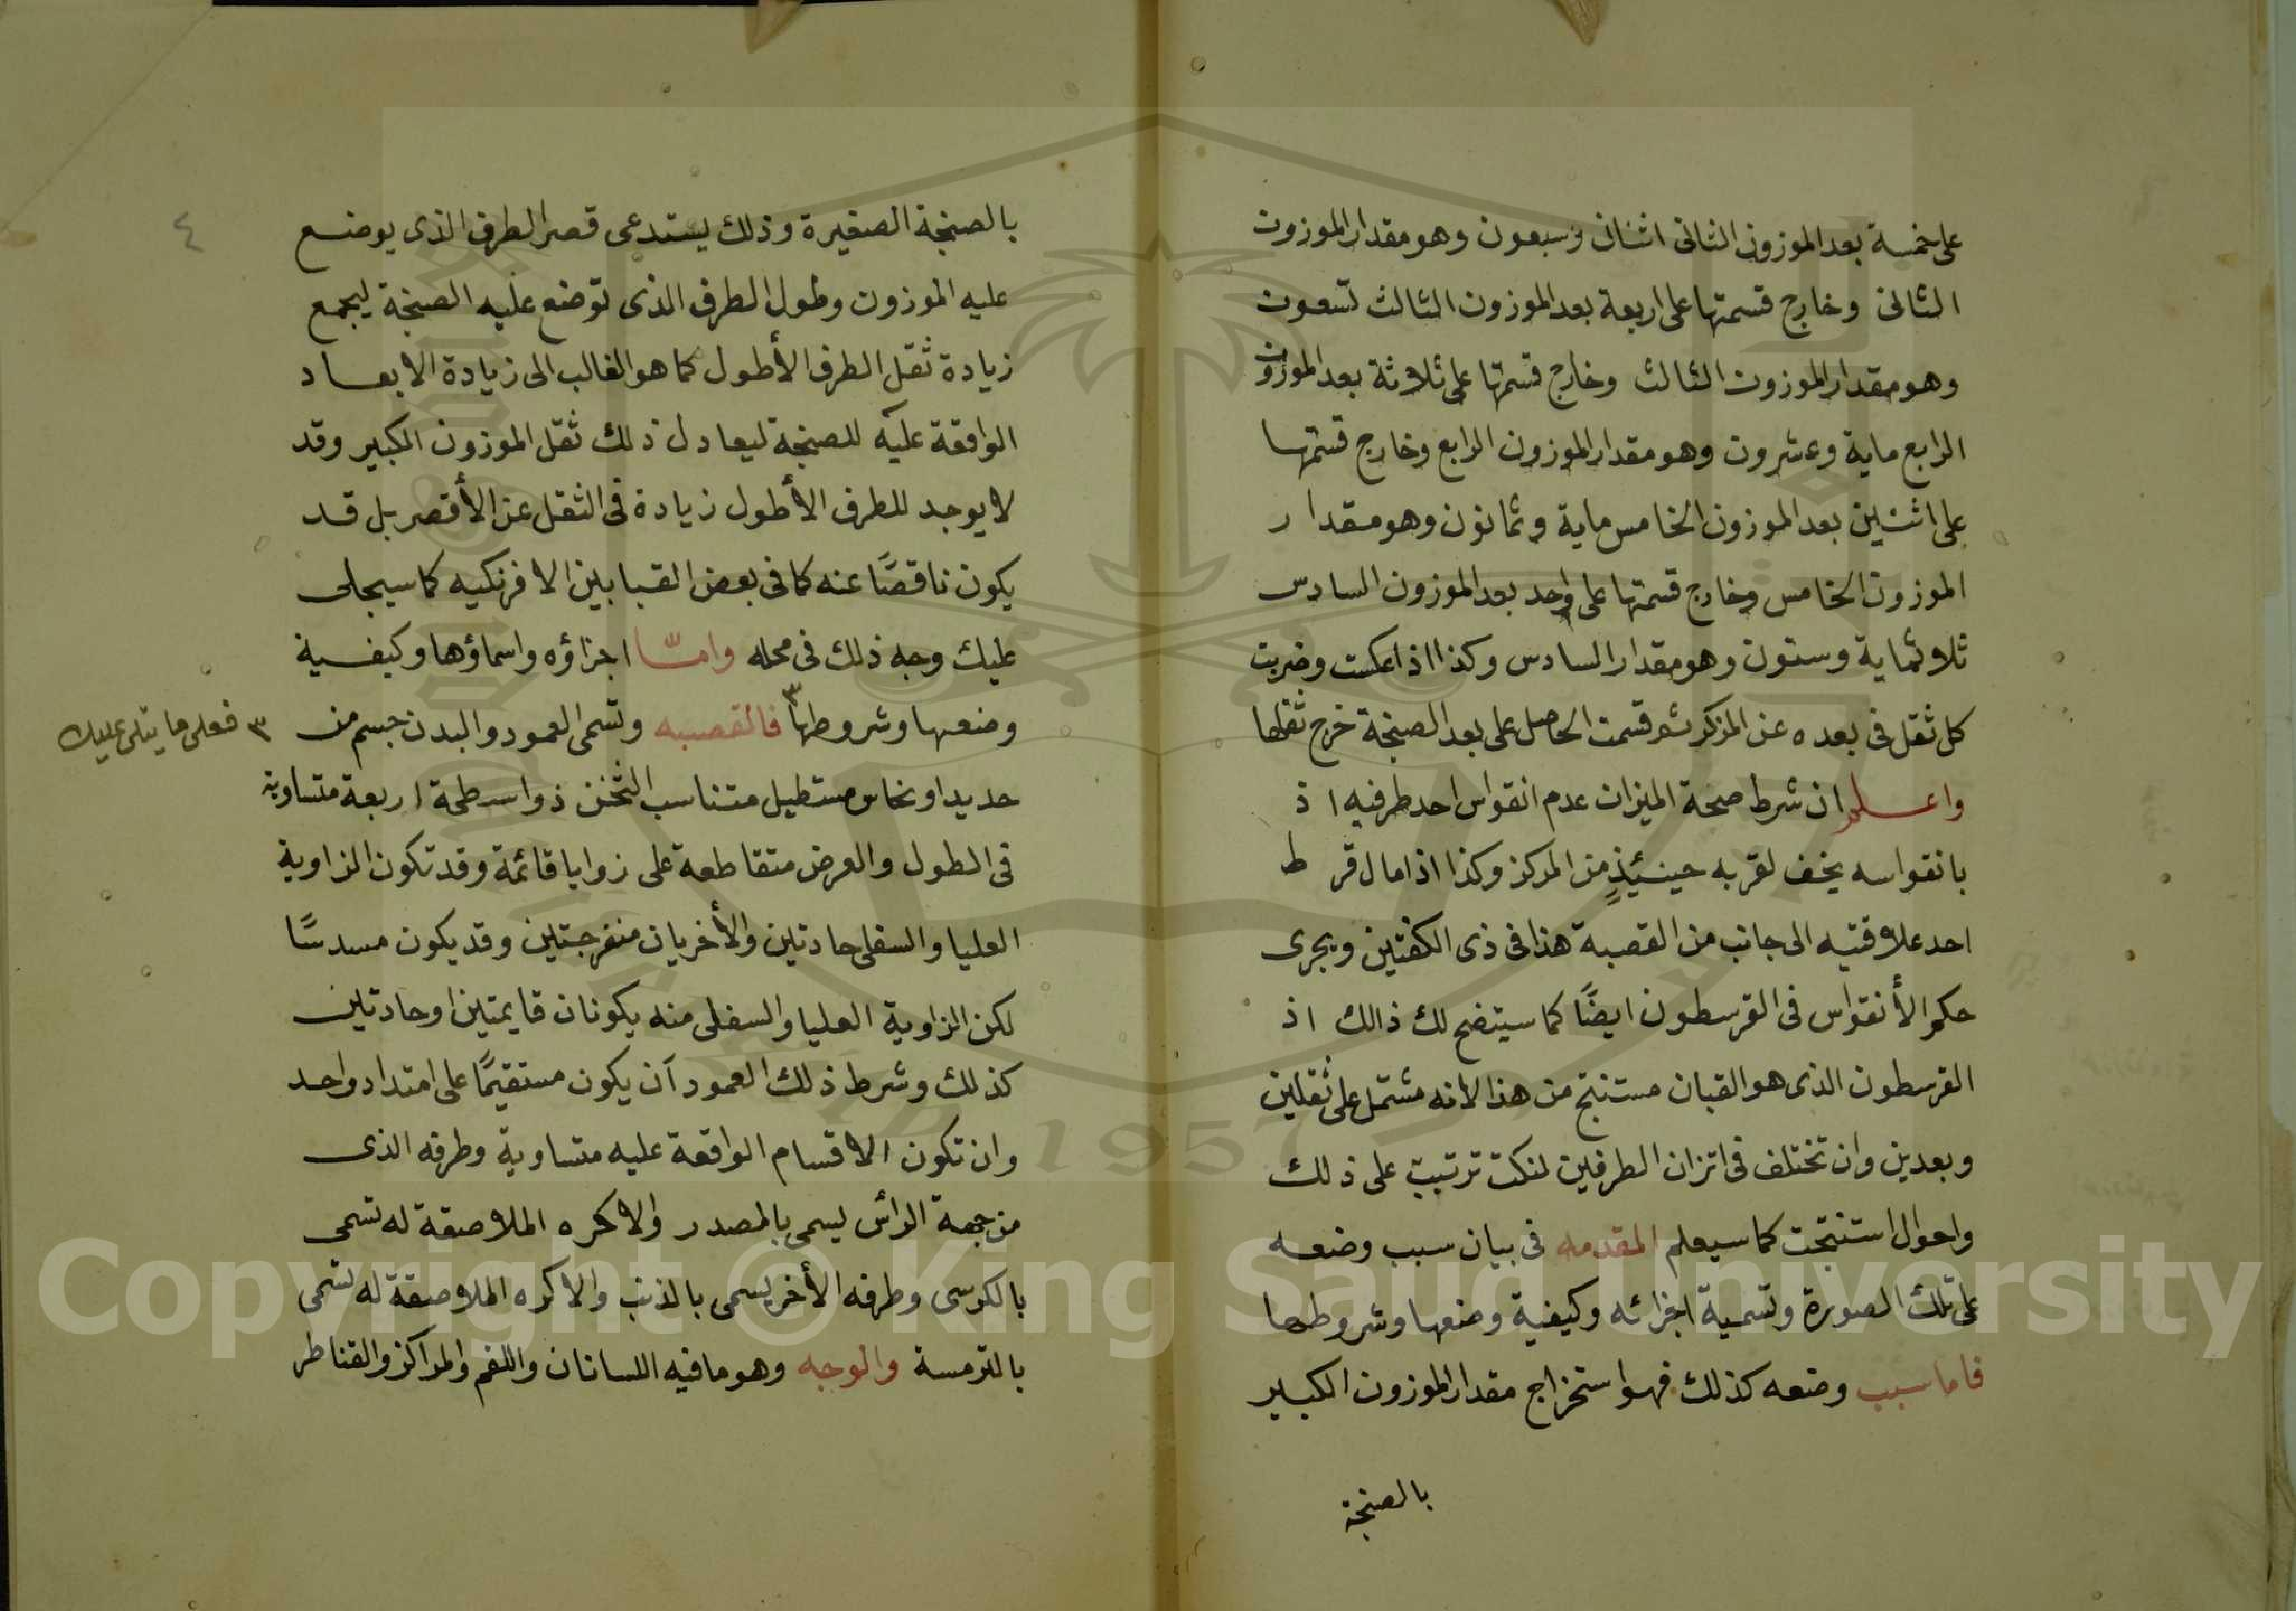 على خمسة بعد الموزون الثانى اثنان وسبعون وهو مقدار الموزون
الثانى وخارج قسمتها على اربعة بعد الموزون الثالث تسعون
وهو مقدار الموزون الثالث وخارج قسمتها على ثلاثة بعد الموزون
الرابع ماية وعشرون وهو مقدار الموزون الرابع وخارج قسمتها
على اثنين بعد الموزون الخامس ماية وثمانون وهو مقدار
الموزون الخامس وخارج قسمتها على واحد بعد الموزون السادس
ثلاثماية وستون وهو مقدار السادس وكذا اذا عكست وضربت
كل ثقل فى بعده عن المركز ثم قسمت الحاصل على بعد الصنجة خرج ثقلها
واعلم ان شرط صحة الميزان عدم انقواس احد طرفيه اذ
بانقواسه يخف لقربه حينئيذٍ من المركز وكذا اذا مال قرط
احد علاقتيه الى جانب من القصبة هذا فى ذى الكفتين ويجرى
حكم الأنقواس فى القرسطون ايضًا كما سيتضح لك ذالك اذ
القرسطون الذى هو القبان مستنتج من هذا لانه مشتمل على ثقلين
وبعدين وان تختلف فى اتزان الطرفين لنكت ترتبت على ذلك
واحوال استنتجت كما سيعلم المقدمه فى بيان سبب وضعه
على تلك الصورة وتسمية اجزائه وكيفية وضعها وشروطها
فاما سبب وضعه كذلك فهو استخراج مقدار الموزون الكبير
بالصنجة
٤
بالصنجة الصغيرة وذلك يستدعى قصر الطرف الذى يوضع
عليه الموزون وطول الطرف الذى توضع عليه الصنجة ليجمع
زيادة ثقل الطرف الأطول كما هو الغالب الى زيادة الابعاد
الواقعة عليه للصنجة ليعادل ذلك ثقل الموزون الكبير وقد
لا يوجد للطرف الأطول زيادة فى الثقل عن الأقصر بل قد
يكون ناقصًا عنه كما فى بعض القبابين الافرنكيه كما سيجلى
عليك وجه ذلك فى محله وامّا اجزاؤه واسماؤها وكيفية
وضعها وشروطها ٣ فالقصبه وتسمى العمود والبدن جسم من
٣ فعلى ما يتلى عليك
حديد او نحاس مستطيل متناسب الثخن ذو اسطحة اربعة متساوية
فى الطول والعرض متقاطعة على زوايا قائمة وقد تكون الزاوية
العليا والسفلى حادتين والأخريان منفرجتين وقد يكون مسدسًا
لكن الزاوية العليا والسفلى منه يكونان قايمتين او حادتين
كذلك وشرط ذلك العمود ان يكون مستقيمًا على امتداد واحد
وان تكون الاقسام الواقعة عليه متساوية وطرفه الذى
من جهة الرأس يسمى بالمصدر والاكره الملاصقة له تسمى
بالكرسى وطرفه الأخر يسمى بالذنب والاكره الملاصقة له تسمى
بالترمسة والوجه وهو ما فيه اللسانان واللقم والمراكز والقناطر
Copyright © King Saud University
1957